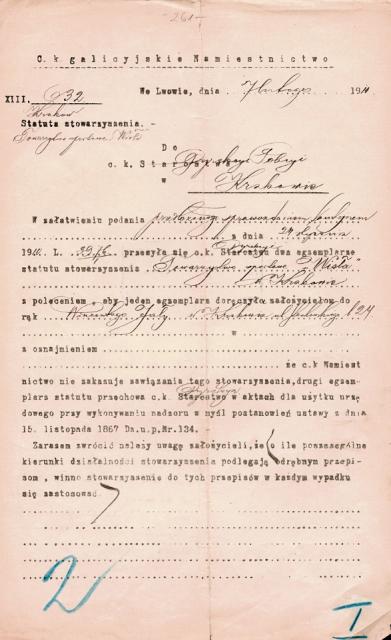 261-
C. k galicyjskie Namiestnictwo
We Lwowie, dnia 7 lutego 1911
XIII. 632
Kraków
Statuta stowarzyszenia. -
Towarzystwo sportowe "Wisła"
Do
c. k. Starostwa Dyrekcyi Policyi
w Krakowie
W załatwieniu podania
z dnia 24 stycznia
1911. L. przesyła c.k. Starostwu dwa egzemplarze
Dyrekcyi
statutu stowarzyszenia Towarzystwo sportowe "Wisła"
w Krakowie
z poleceniem, aby jeden egzemplarz doręczyło założycielom do
rąk w Krakowie ul. l 24
w
z oznajmieniem
że c.k Namiest
nictwo nie zakazuje zawiązania tego stowarzyszenia, drugi egzem-
plarz statutu przechowa c.k Starostwo w aktach dla użytku urzę
Dyrekcya
dowego przy wykonywaniu nadzoru w myśl postanowień ustawy z dnia
15. listopada 1867 Dz.u.p, Nr.134. -
Zarazem zwrócić należy uwagę założycieli, że o ile poszczególne
kierunki działalności stowarzyszenia podlegają odrębnym przepi-
som , winno stowarzyszenie do tych przepisów w każdym wypadku
się zastosować
2
I